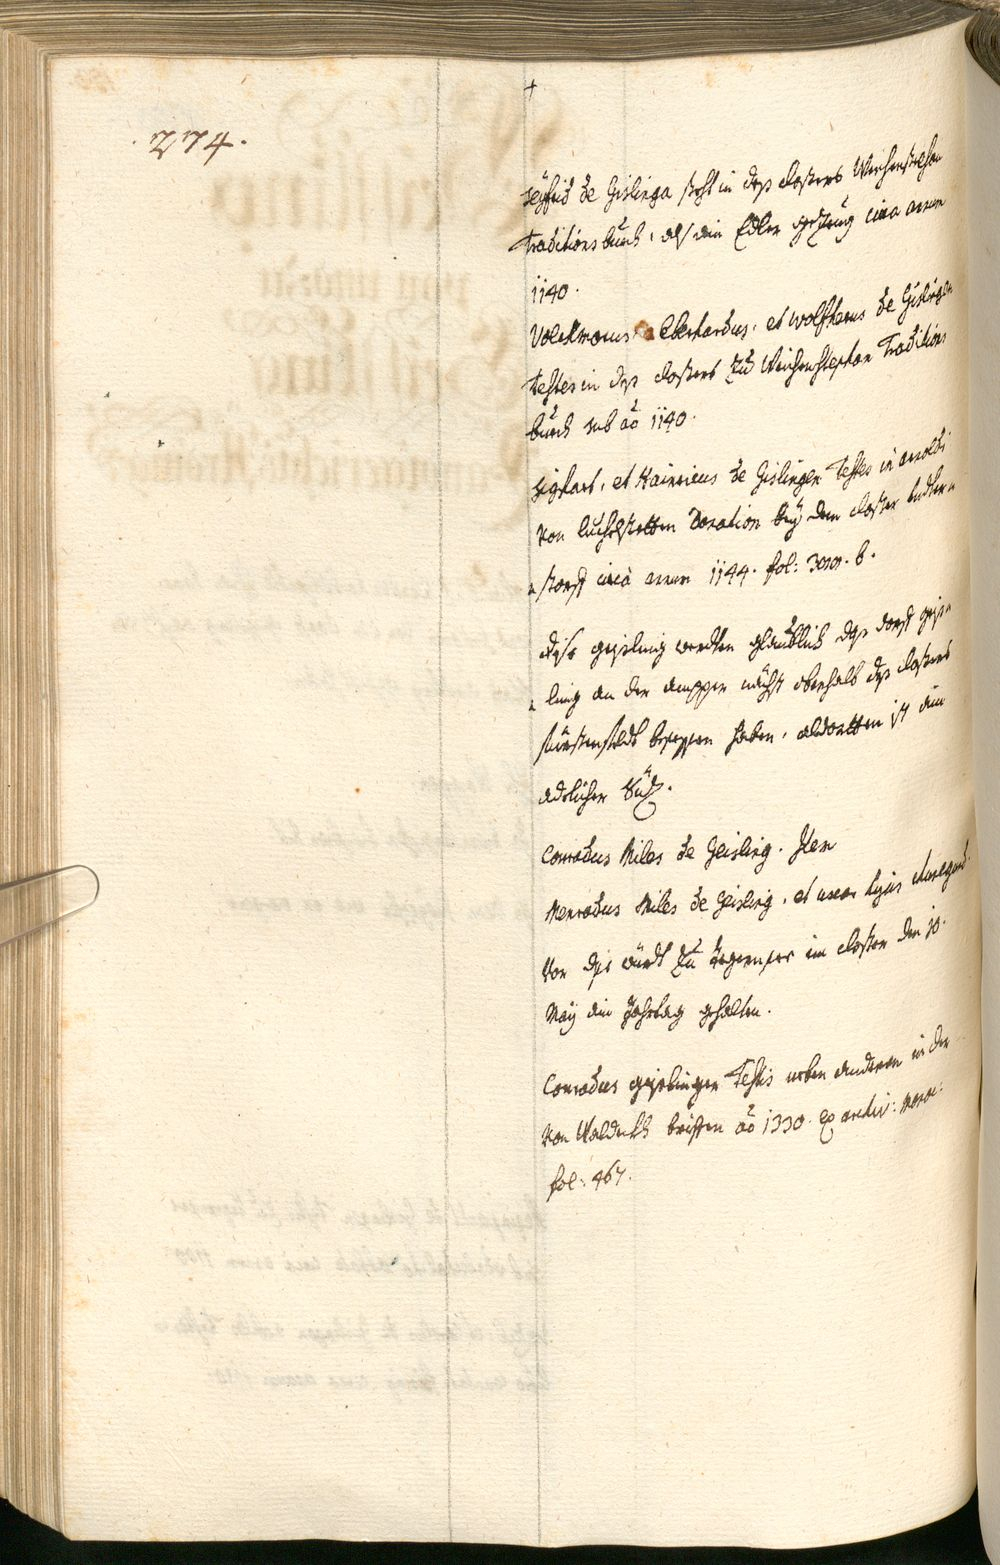 . 274 .
Seyfrid de Gislinga steht in deß closters Weichenstephan
Traditionsbuech, als ein Edler gezeug circa annum
1140.
Volckmarus, Eberhardus, et wolfherus de Gislingen
testes in deß closters zu Weichenstephan Traditions
buech sub ao 1140.
Sighart, et Hainricus de Gislingen Testes in arnoldi
von Donation bey dem closter under=
=storff circa annum 1144. fol: b.
dise geisling werdten glaublich deß dorff geis=
=ling an der amper nächst oberhalb deß closters
fürstenfeldt besessen haben, aldortten ist ein
adelicher Siz.
Conradus Miles de Geisling. Item
Menradus Miles de Geisling, et uxor ejus
Von dise würdt zu tegernsee im closter den 10.
Maij ein Jahrtag gehalten.
Conradus geislinger Testis neben anderen in der
von Waldeckh brieffen ao 1330. ex archiv:
fol: 467.